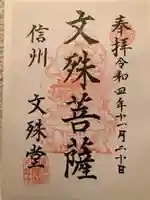 奉拝
令和四年十一月二十日
文殊菩薩
信州
文殊堂